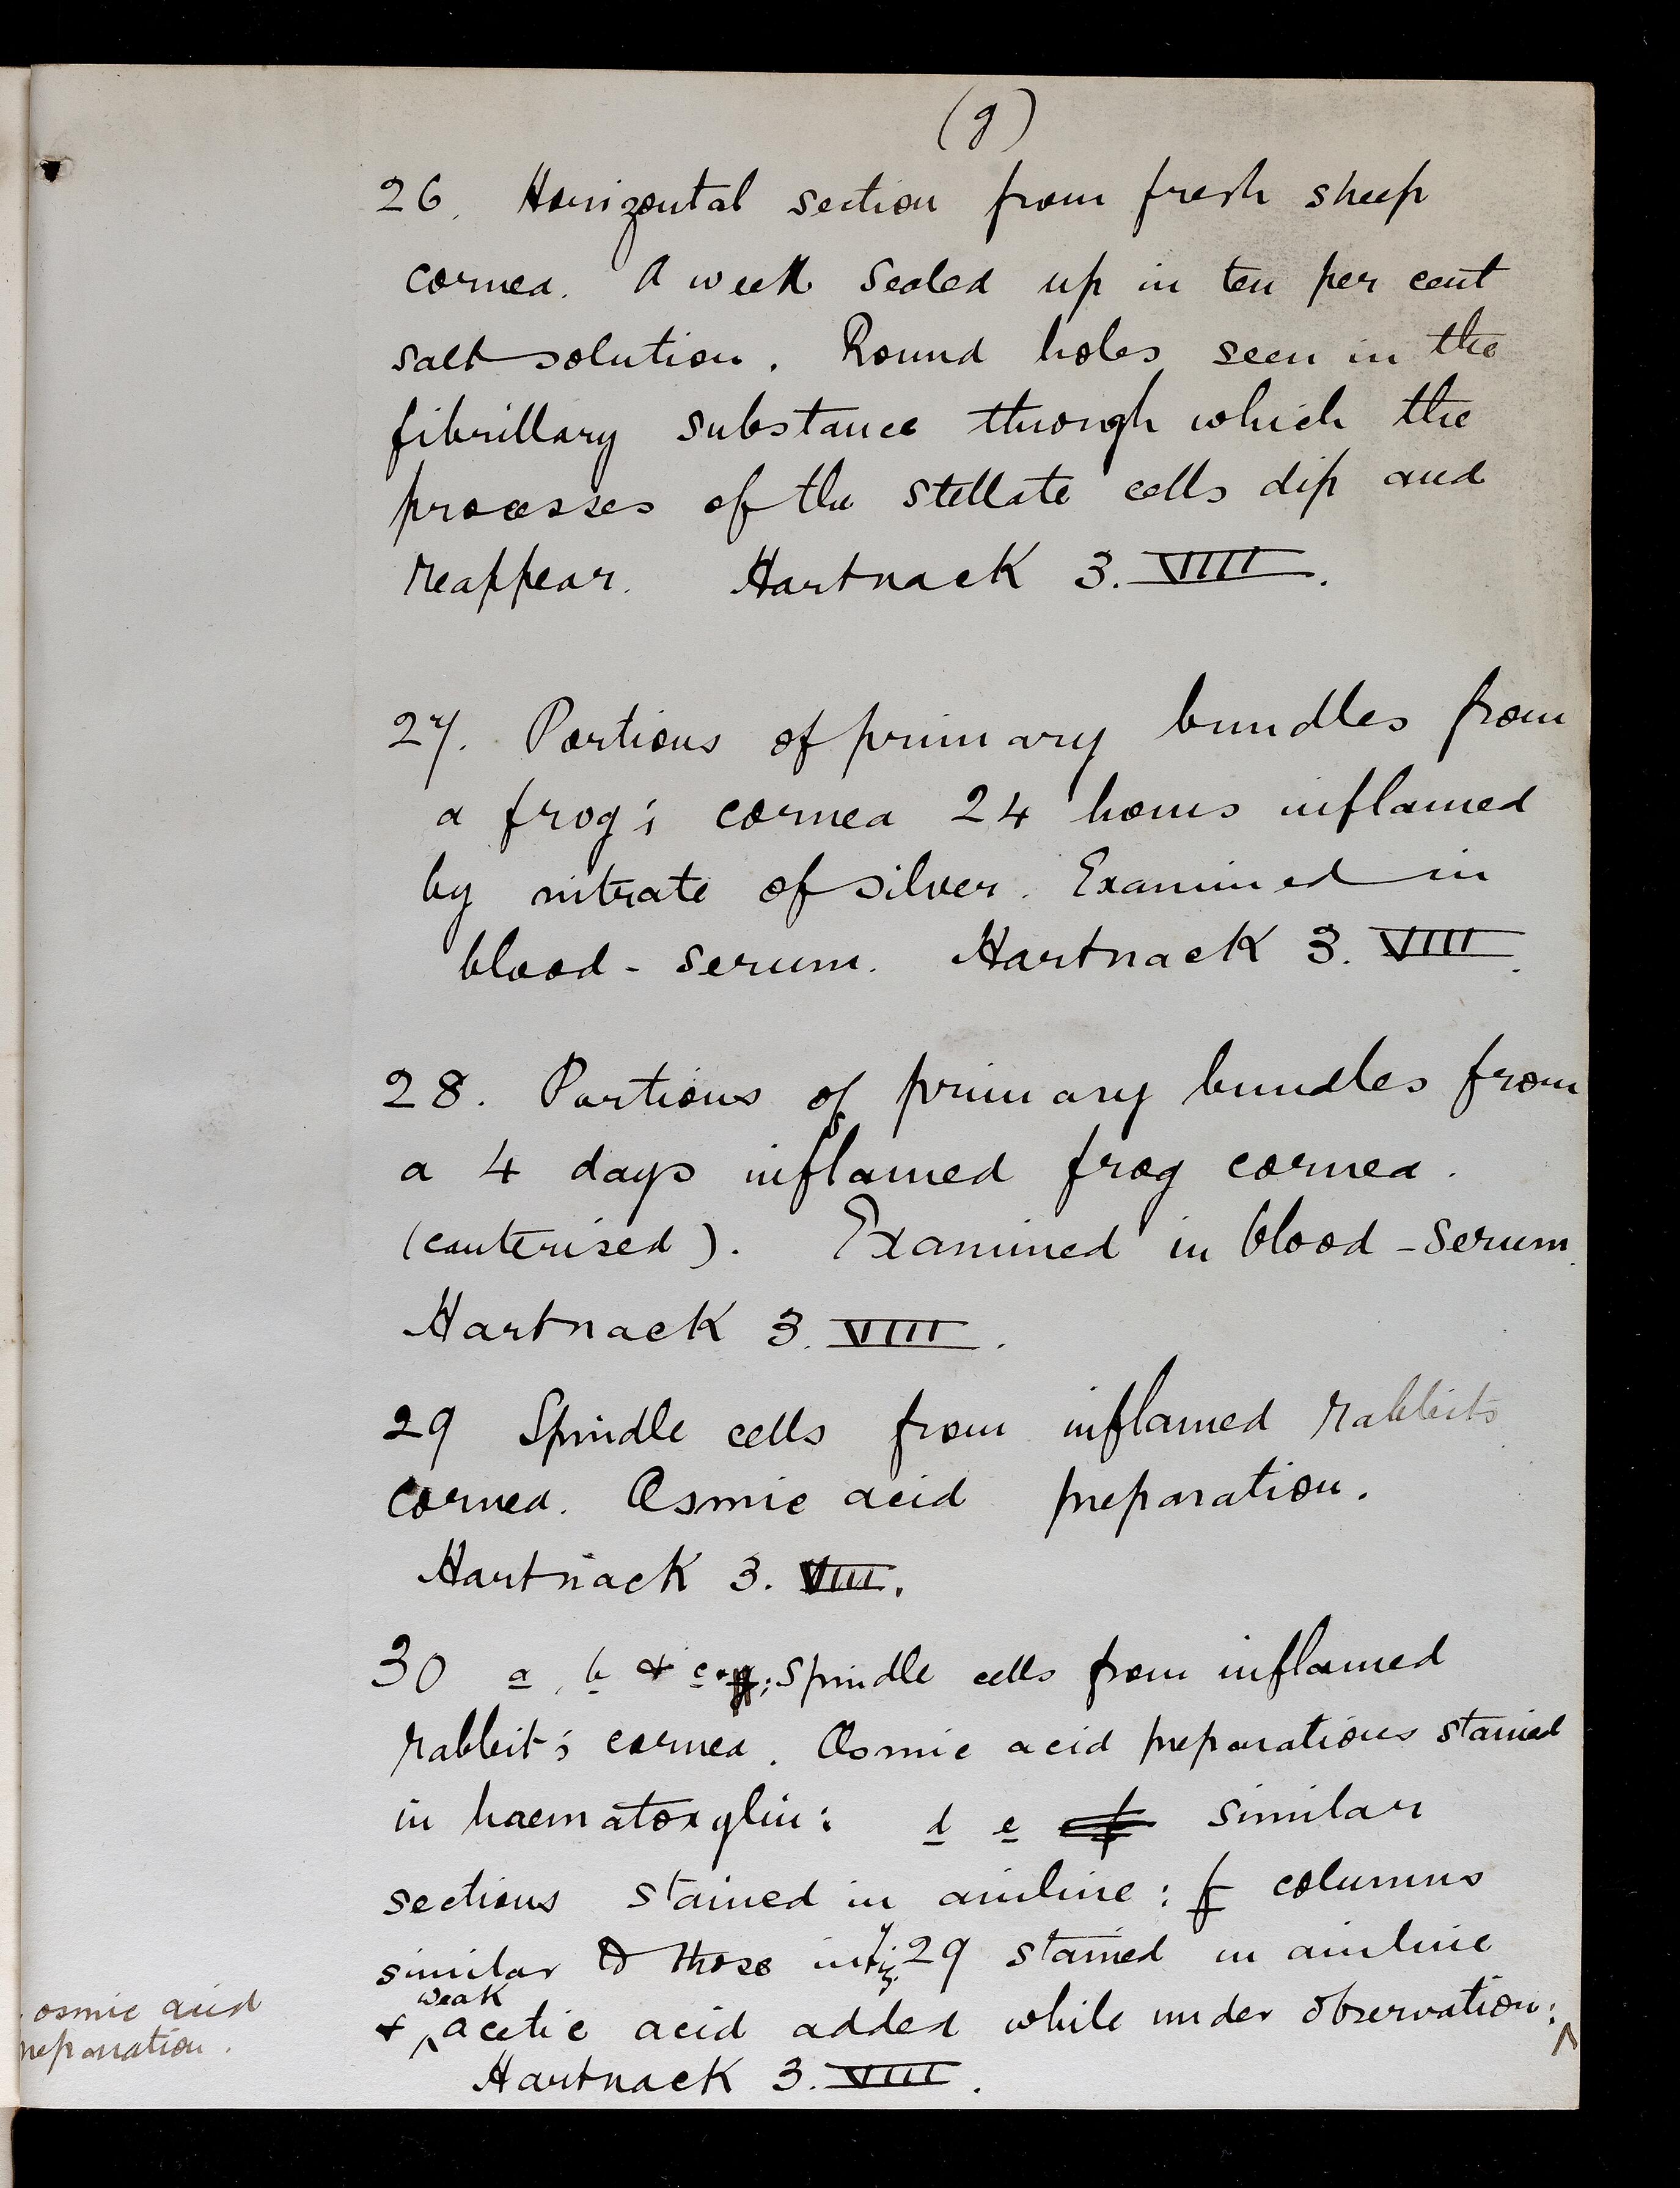 (g)
26. Horizontal section from fresh sheep
cornea. A week sealed up in ten per cent
salt solution. Round holes seen in the
fibrillary substance through which the
processes of the stellate cells dip and
reappear. Hartnack 3. VIIII.
27. Portions of primary bundles from
a frog's cornea 24 hours inflamed
by nitrate of silver. Examined in
blood-serum. Hartnack 3. VIIII.
28. Portions of primary bundles from
a 4 days inflamed frog cornea.
(cauterised). Examined in blood-serum.
Hartnack 3. VIIII.
29 Spindle cells from inflamed rabbits
cornea. Osmic acid preparation.
Hartnack 3. VIII.
30 a, b & c; Spindle cells from inflamed
rabbit's cornea. Osmic acid preparations stained
in haematoxylin: d e f similar
sections stained in aniline: f columns
similar to those in fig. 29 stained in aniline
weak
& ^ acetic acid added while under observation: ^
osmic acid
reparation.
Hartnack 3. VIIII.